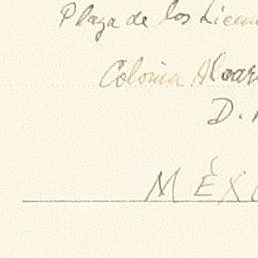 Plaza de los Licen
Colonia Alvar
D.
MÉXI